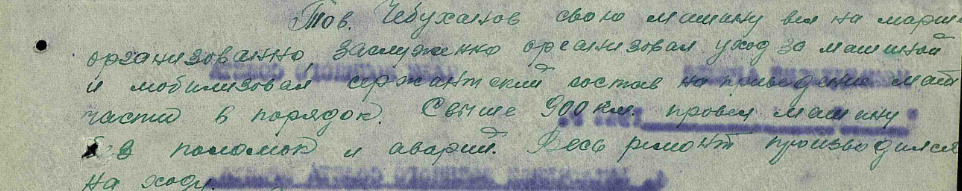 Тов. Чебуханов свою машину вел на марше
организованно, заслуженно организовал уход за машиной
и мобилизовал сержантский состав на приведение мат
части в порядок. Свыше 900 км. провел машину
без поломок и аварий. Весь ремонт производился
на ходу.